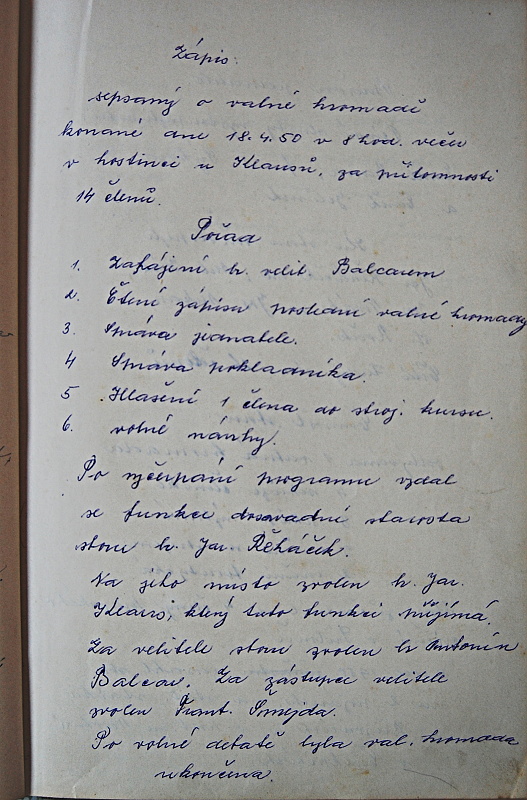 Zápis:
sepsaný o valné hromadě
konané dne 18.4.50 v 8 hod. večer
v hostinci u Klausů, za přítomnosti
14 členů.
Pořad
1. Zahájení br. velit. Balcarem
2. Čtení zápisu poslední valné hromady
3. Správa jednatele.
4 Správa pokladníka.
5 Hlášení 1 člena do stroj. kursu.
6. volné návrhy.
Po vyčerpání programu vzdal
se funkce dosavadní starosta
sboru br. Jar. Řeháček.
Na jeho místo zvolen br. Jar.
Klaus, který tuto funkci přijímá.
Za velitele sboru zvolen br Antonín
Balcar. Za zástupce velitele
zvolen Frant. Šmejda.
Po volné debatě byla val. hromada
ukončena.